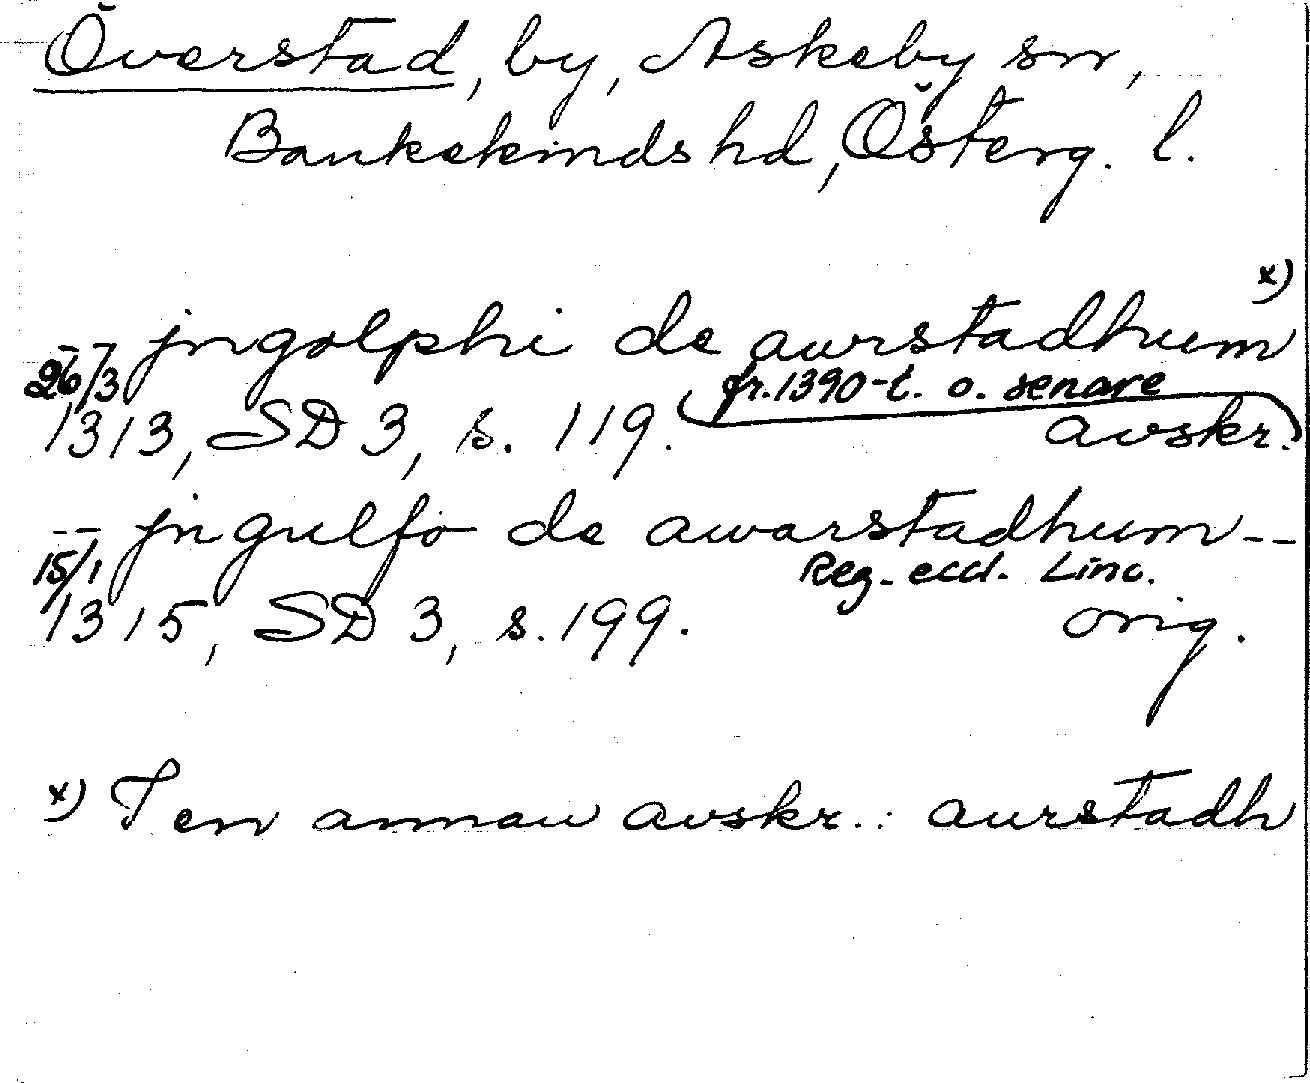 Överstad, by, Askeby sn,
Bankekinds hd, Österg. l.
x)
-- jngolphi de aurstadhum
26/3 fr. 1390-t. o. senare
1313, SD 3, s. 119. avskr.
-- jngulfo de awarstadhum--
15/1 Reg. eccl. Linc.
1315, SD 3, s. 199. orig.
x) I en annan avskr.: aurstadh